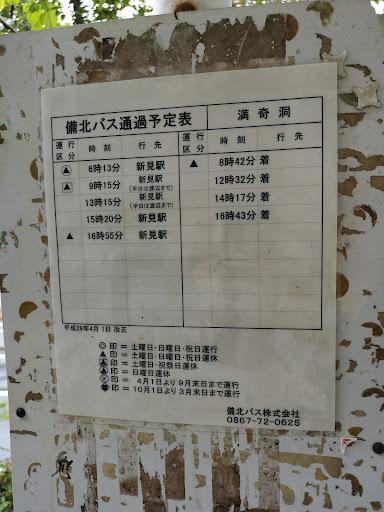 備北バス通過予定表 満奇洞
運行区分 時刻 行先 運行区分 時刻 行先
6時13分 新見駅 ▲ 8時42分 着
9時15分 新見駅 (平日は渡辺まで) 12時32分 着
13時15分 新見駅 (平日は渡辺まで) 14時17分 着
15時20分 新見駅 16時43分 着
▲ 16時55分 新見駅
平成29年4月1日 改正
◎印 = 土曜日・日曜日・祝日運行
▲印 = 土曜日・日曜日・祝日運休
印 = 土曜日・祝祭日運休
印 = 日曜日運休
印 = 4月1日より9月末日まで運行
印 = 10月1日より3月末日まで運行
備北バス株式会社
0867-72-0625